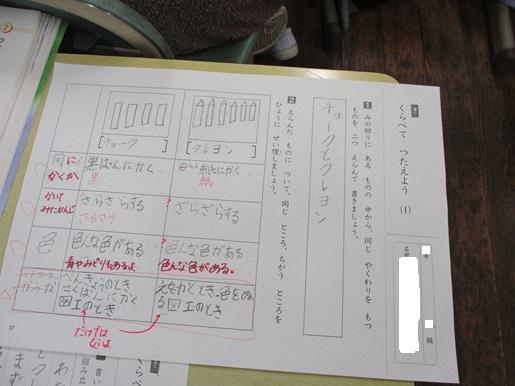 くらべて つたえよう (1)
1 みの回りに ある ものの 中から、同じ やくわりを もつ
ものを 二つ えらんで 書きましょう。
チョークとクレヨン
2 えらんだ ものに ついて、同じ ところ、ちがう ところを
ひょうに せい理しましょう。
[クレヨン]
[チョーク]
何に
かくか
黒ばんにかく
紙にかく
紙
かいて
みたかんじ
さらさらする
さらさら
ざらざらする
色
色んな色がある
青やみどりもあるよ
色んな色がある
色んな色がある。
べんきょうのとき
こくばんにかく
図工のとき
えをかくとき、色をぬる
図工のとき
だけでは
ないよ